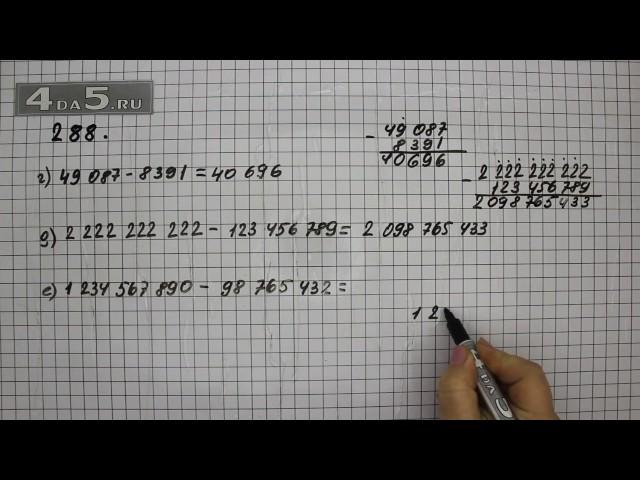 4DA5.RU
288.
г) 49 087 - 8391 = 40 696
д) 2 222 222 222 - 123 456 789 = 2 098 765 433
е) 1 234 567 890 - 98 765 432 =
- 49 087
8391
40696
- 2 222 222 222
123 456 789
2 098 765 433
1 2
4DA5